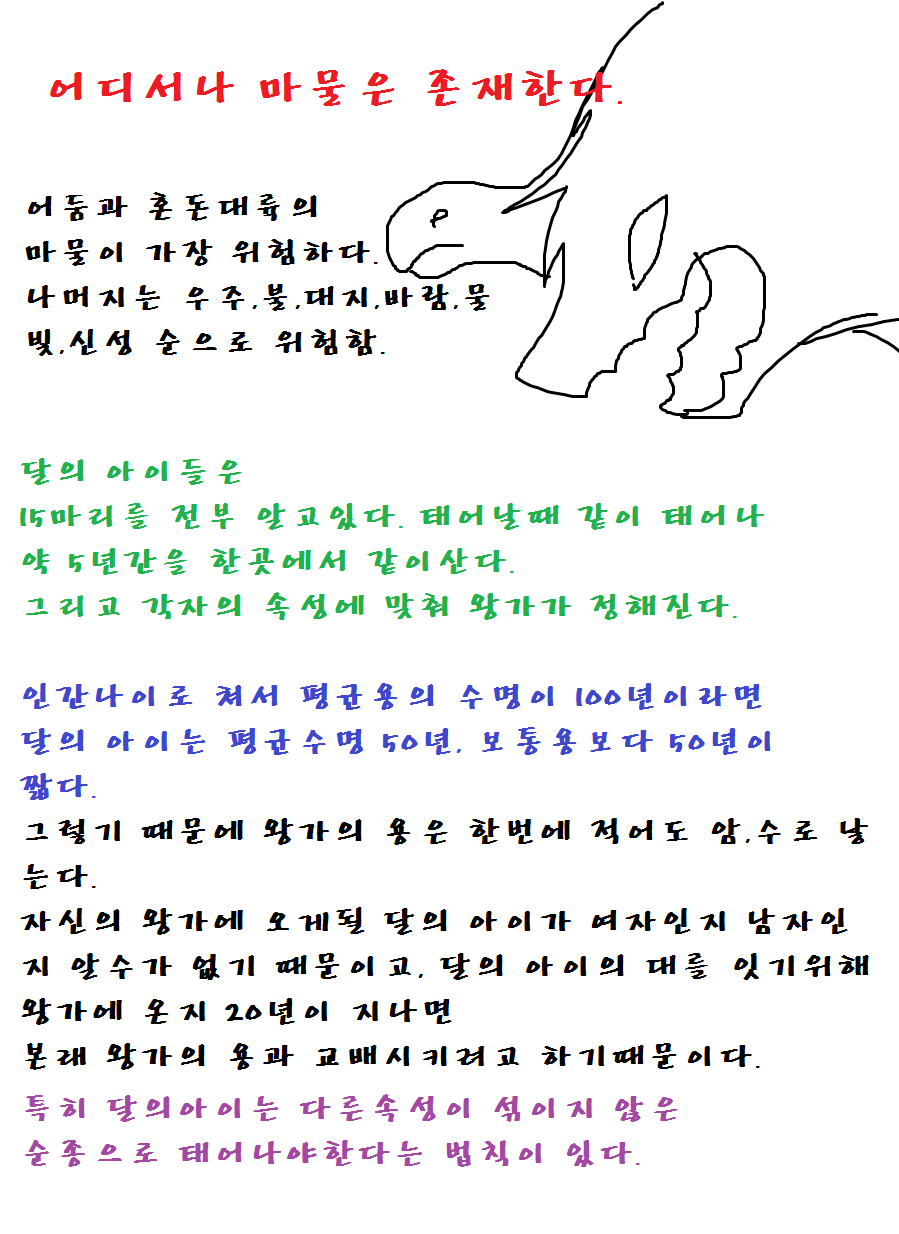 어디서나 마물은 존재한다.
어둠과 혼돈대륙의
마물이 가장 위험하다.
나머지는 우주,불,대지,바람,물
빛,신성 순으로 위험함.
달의 아이들은
15마리를 전부 알고있다. 태어날때 같이 태어나
약 5년간을 한곳에서 같이산다.
그리고 각자의 속성에 맞춰 왕가가 정해진다.
인간나이로 쳐서 평균용의 수명이 100년이라면
달의 아이는 평균수명 50년, 보통용보다 50년이
짧다.
그렇기 때문에 왕가의 용은 한번에 적어도 암,수로 낳
는다.
자신의 왕가에 오게될 달의 아이가 여자인지 남자인
지 알수가 없기 때문이고, 달의 아이의 대를 잇기위해
왕가에 온지 20년이 지나면
본래 왕가의 용과 교배시키려고 하기때문이다.
특히 달의아이는 다른속성이 섞이지 않은
순종으로 태어나야한다는 법칙이 있다.